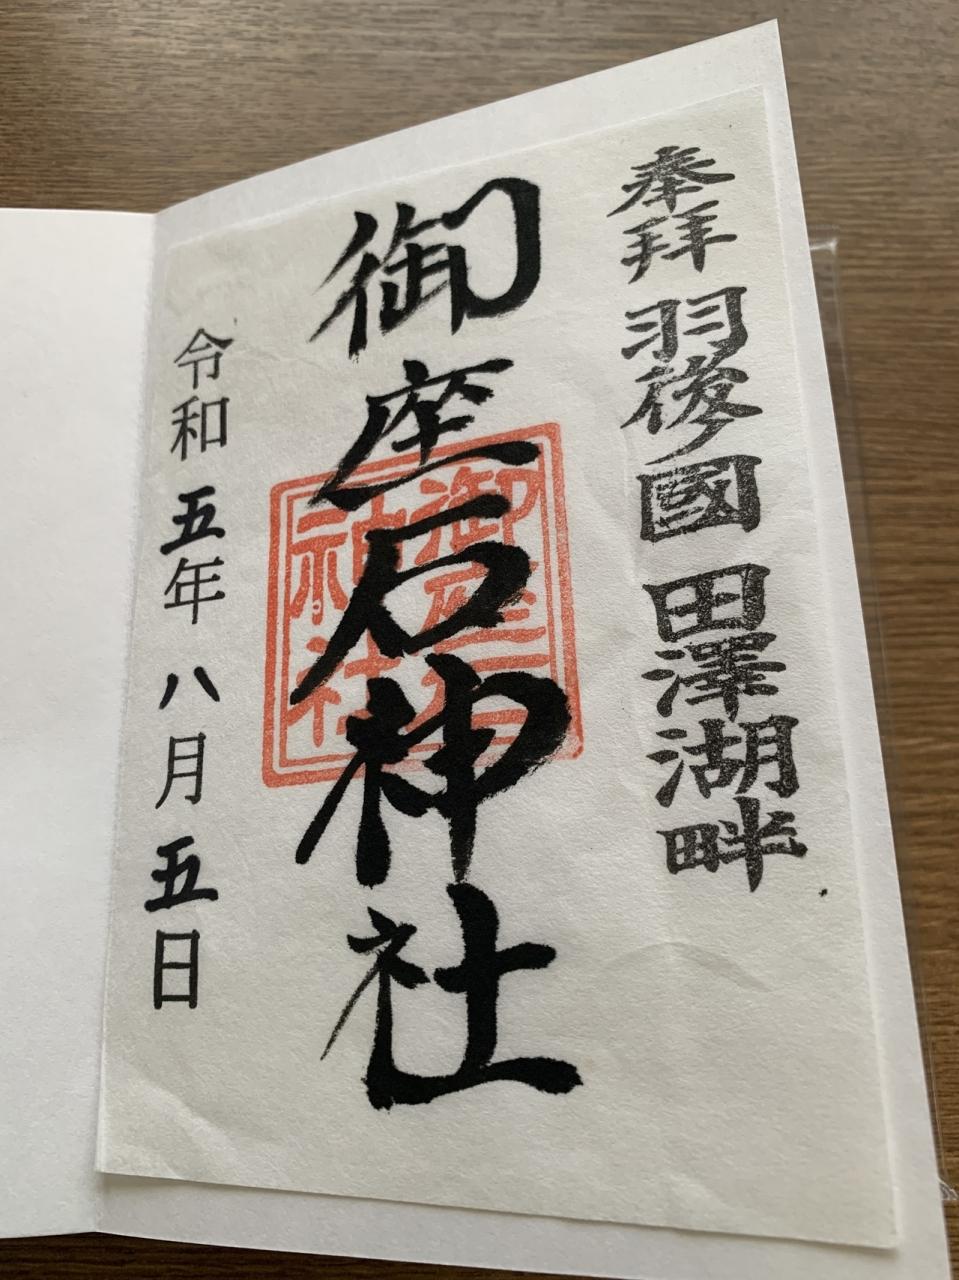 奉拝 羽後國 田澤湖畔
御座石神社
御座石
神社
令和五年八月五日